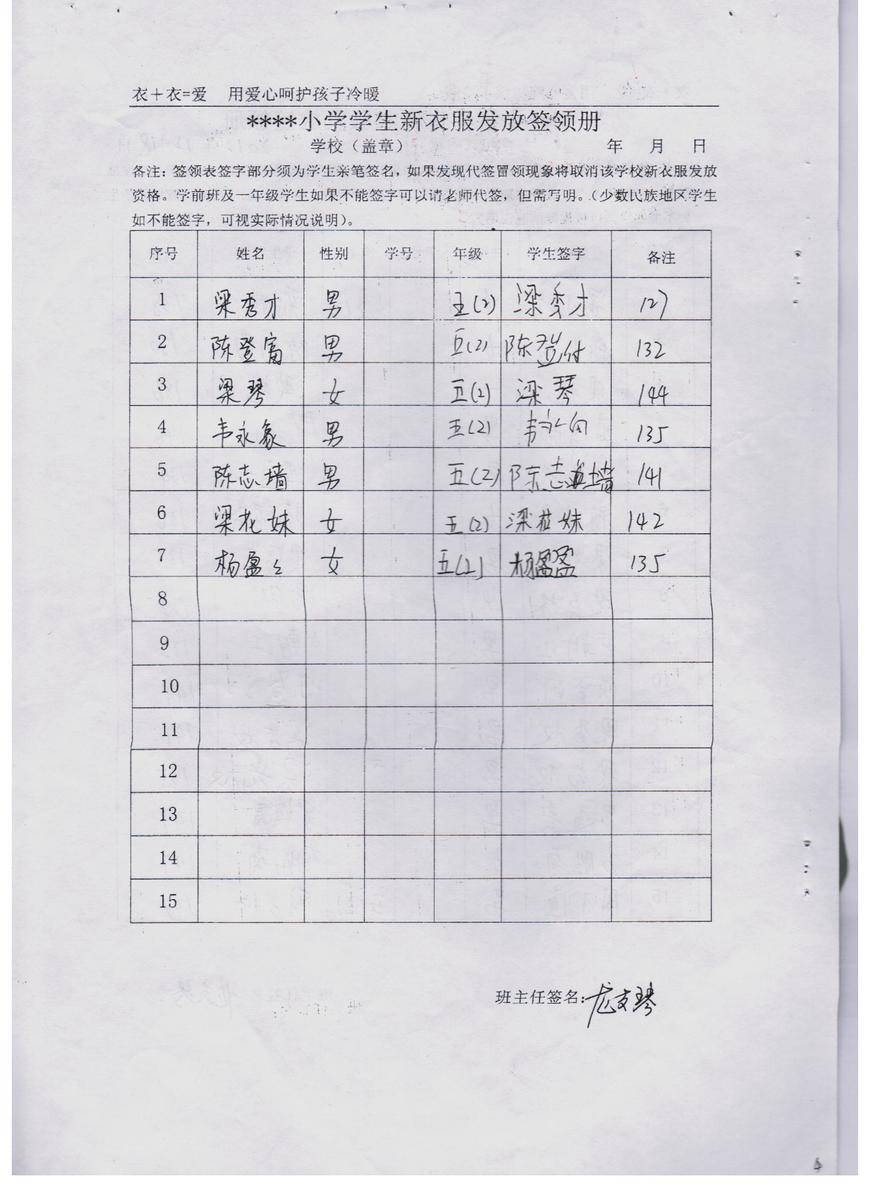 衣＋衣=爱 用爱心呵护孩子冷暖
****小学学生新衣服发放签领册
学校（盖章） 年 月 日
备注：签领表签字部分须为学生亲笔签名，如果发现代签冒领现象将取消该学校新衣服发放
资格。学前班及一年级学生如果不能签字可以请老师代签，但需写明。（少数民族地区学生
如不能签字，可视实际情况说明）。
序号 姓名 性别 学号 年级 学生签字 备注
1 梁秀才 男 五(2) 梁秀才 127
2 陈登富 男 五(2) 陈登付 132
3 梁琴 女 五(2) 梁琴 144
4 韦永象 男 五(2) 135
5 陈志墙 男 五(2) 陈志墙 141
6 梁花妹 女 五(2) 梁花妹 142
7 杨盈々 女 五(2) 杨盈盈 135
8
9
10
11
12
13
14
15
班主任签名：龙支琴